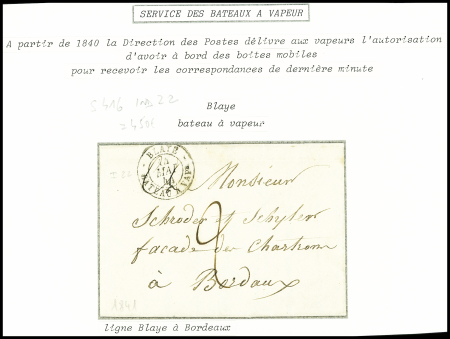 SERVICE DES BATEAUX A VAPEUR
A partir de 1840 la Direction des Postes délivre aux vapeurs l'autorisation
d'avoir à bord des boites mobiles
pour recevoir les correspondances de dernière minute
Blaye
bateau à vapeur
BLAYE
BATEAU A VAPR
Monsieur
Schroder & Schyler
façade des Chartrons
2
à Bordeaux
1841
ligne Blaye à Bordeaux